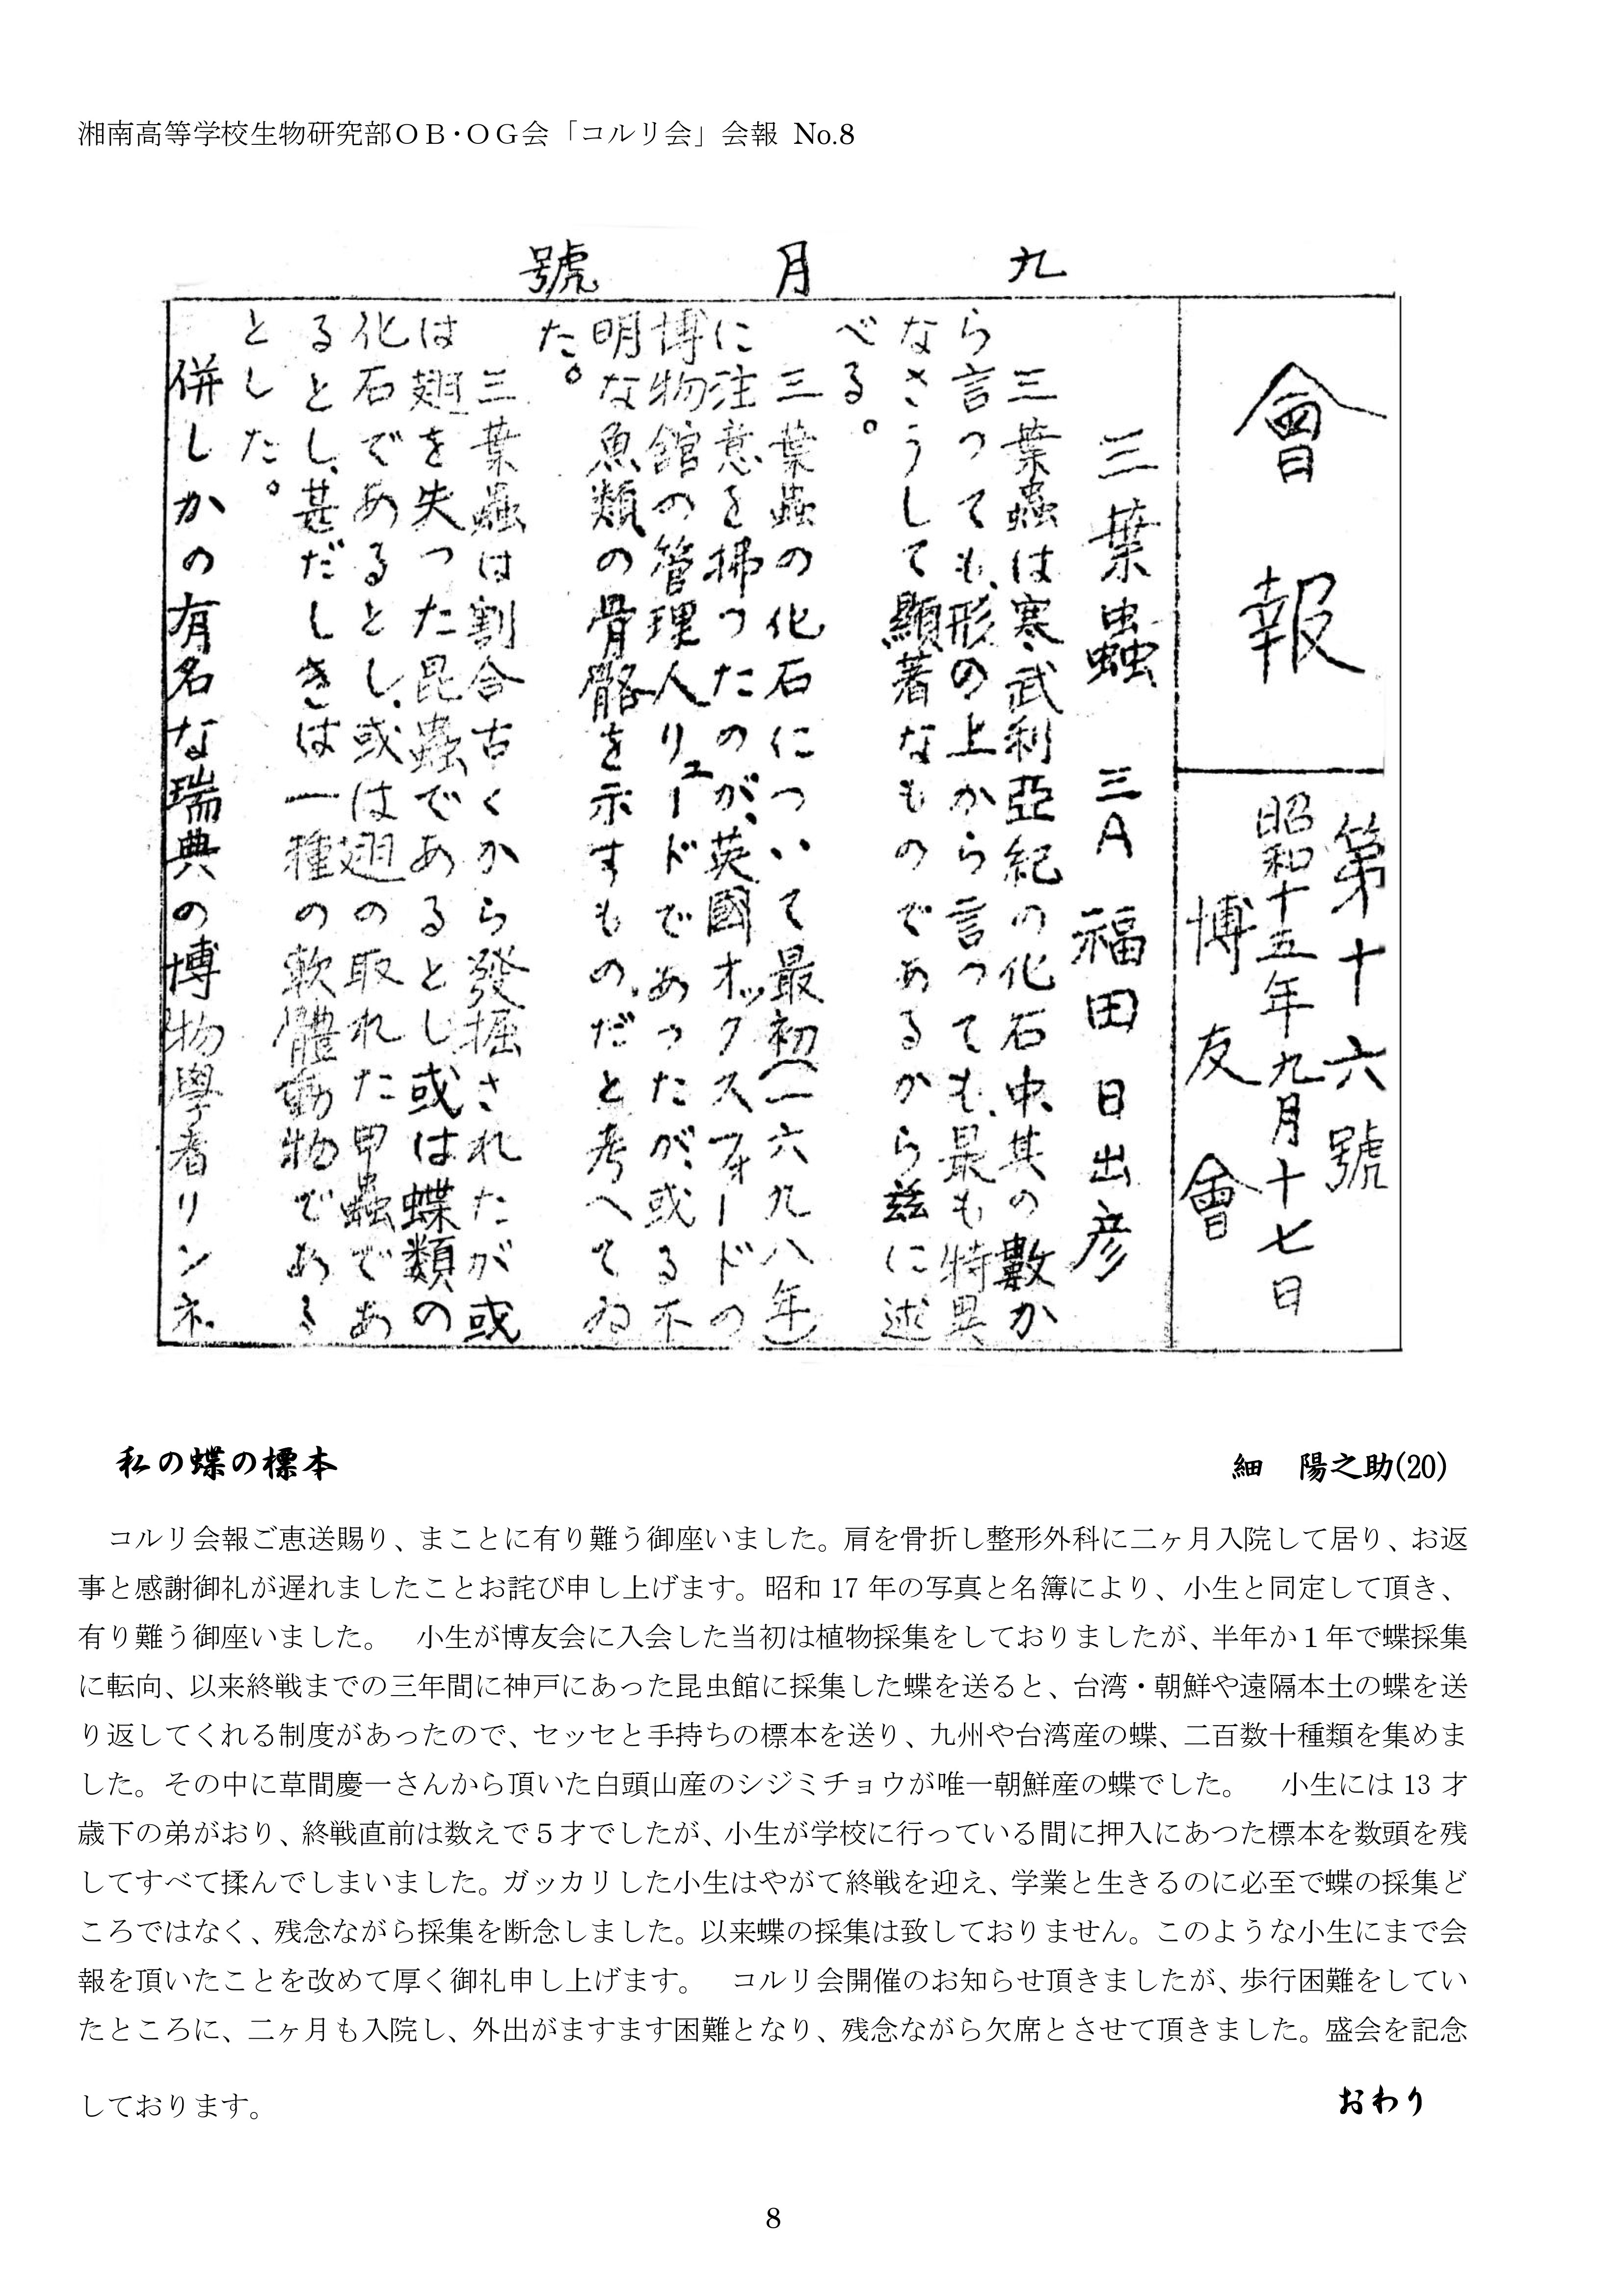 湘南高等学校生物研究部ＯＢ・ＯＧ会「コルリ会」会報 No.8
九月號
會報
第十六號
昭和十五年九月十七日
博友會
三葉蟲　三A　福田日出彦
三葉蟲は寒武利亞紀の化石中、其の數か
ら言つても、形の上から言つても、最も特異
なさうして顯著なものであるから茲に述
べる。
三葉蟲の化石について最初(一六九八年)
に注意を拂つたのが、英國オックスフォードの
博物館の管理人リュードであつたが、或る不
明な魚類の骨骼を示すもの、だと考へてゐ
た。
三葉蟲は割合古くから發掘されたが或
は翅を失つた昆蟲であるとし或は蝶類の
化石であるとし、或は翅の取れた甲蟲であ
るとし、甚だしきは一種の軟體動物である
とした。
併しかの有名な瑞典の博物學者リンネ
私の蝶の標本
細　陽之助(20)
コルリ会報ご恵送賜り、まことに有り難う御座いました。肩を骨折し整形外科に二ヶ月入院して居り、お返
事と感謝御礼が遅れましたことお詫び申し上げます。昭和 17 年の写真と名簿により、小生と同定して頂き、
有り難う御座いました。　小生が博友会に入会した当初は植物採集をしておりましたが、半年か１年で蝶採集
に転向、以来終戦までの三年間に神戸にあった昆虫館に採集した蝶を送ると、台湾・朝鮮や遠隔本土の蝶を送
り返してくれる制度があったので、セッセと手持ちの標本を送り、九州や台湾産の蝶、二百数十種類を集めま
した。その中に草間慶一さんから頂いた白頭山産のシジミチョウが唯一朝鮮産の蝶でした。　小生には 13 才
歳下の弟がおり、終戦直前は数えで５才でしたが、小生が学校に行っている間に押入にあつた標本を数頭を残
してすべて揉んでしまいました。ガッカリした小生はやがて終戦を迎え、学業と生きるのに必至で蝶の採集ど
ころではなく、残念ながら採集を断念しました。以来蝶の採集は致しておりません。このような小生にまで会
報を頂いたことを改めて厚く御礼申し上げます。　コルリ会開催のお知らせ頂きましたが、歩行困難をしてい
たところに、二ヶ月も入院し、外出がますます困難となり、残念ながら欠席とさせて頂きました。盛会を記念
しております。
おわり
8